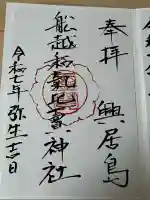 奉拝 興居島
船越和氣比賣神社
令和七年 弥生 日